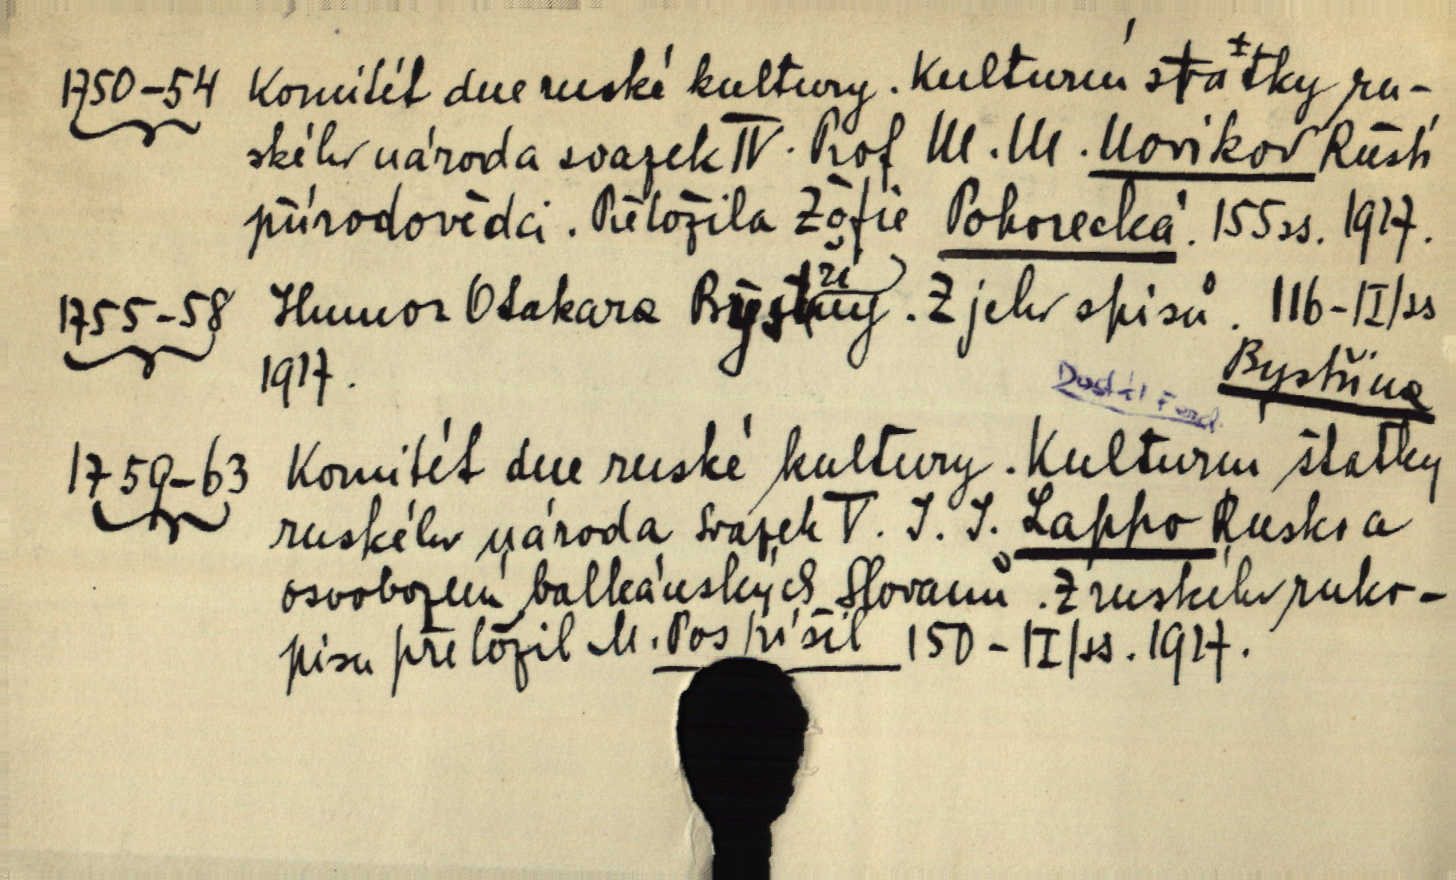 1750-54 Komitét dne ruské kultury. Kulturní statky ru-
ského národa svazek IV. Prof M. M. Novikov Ruští
přírodovědci. Přeložila Žofie Pohorecká. 155 ss. 1927.
1755-58 Humor Otakara Bystřiny. Z jeho spisů. 116-II/ss
1927. Bystřina
1759-63 Komitét dne ruské kultury. Kulturní statky
ruského národa svazek V. I. I. Lappo Rusko a
osvobození balkánských Slovanů. Z ruského ruko-
pisu přeložil M. Pospíšil 150-II/ss. 1927.